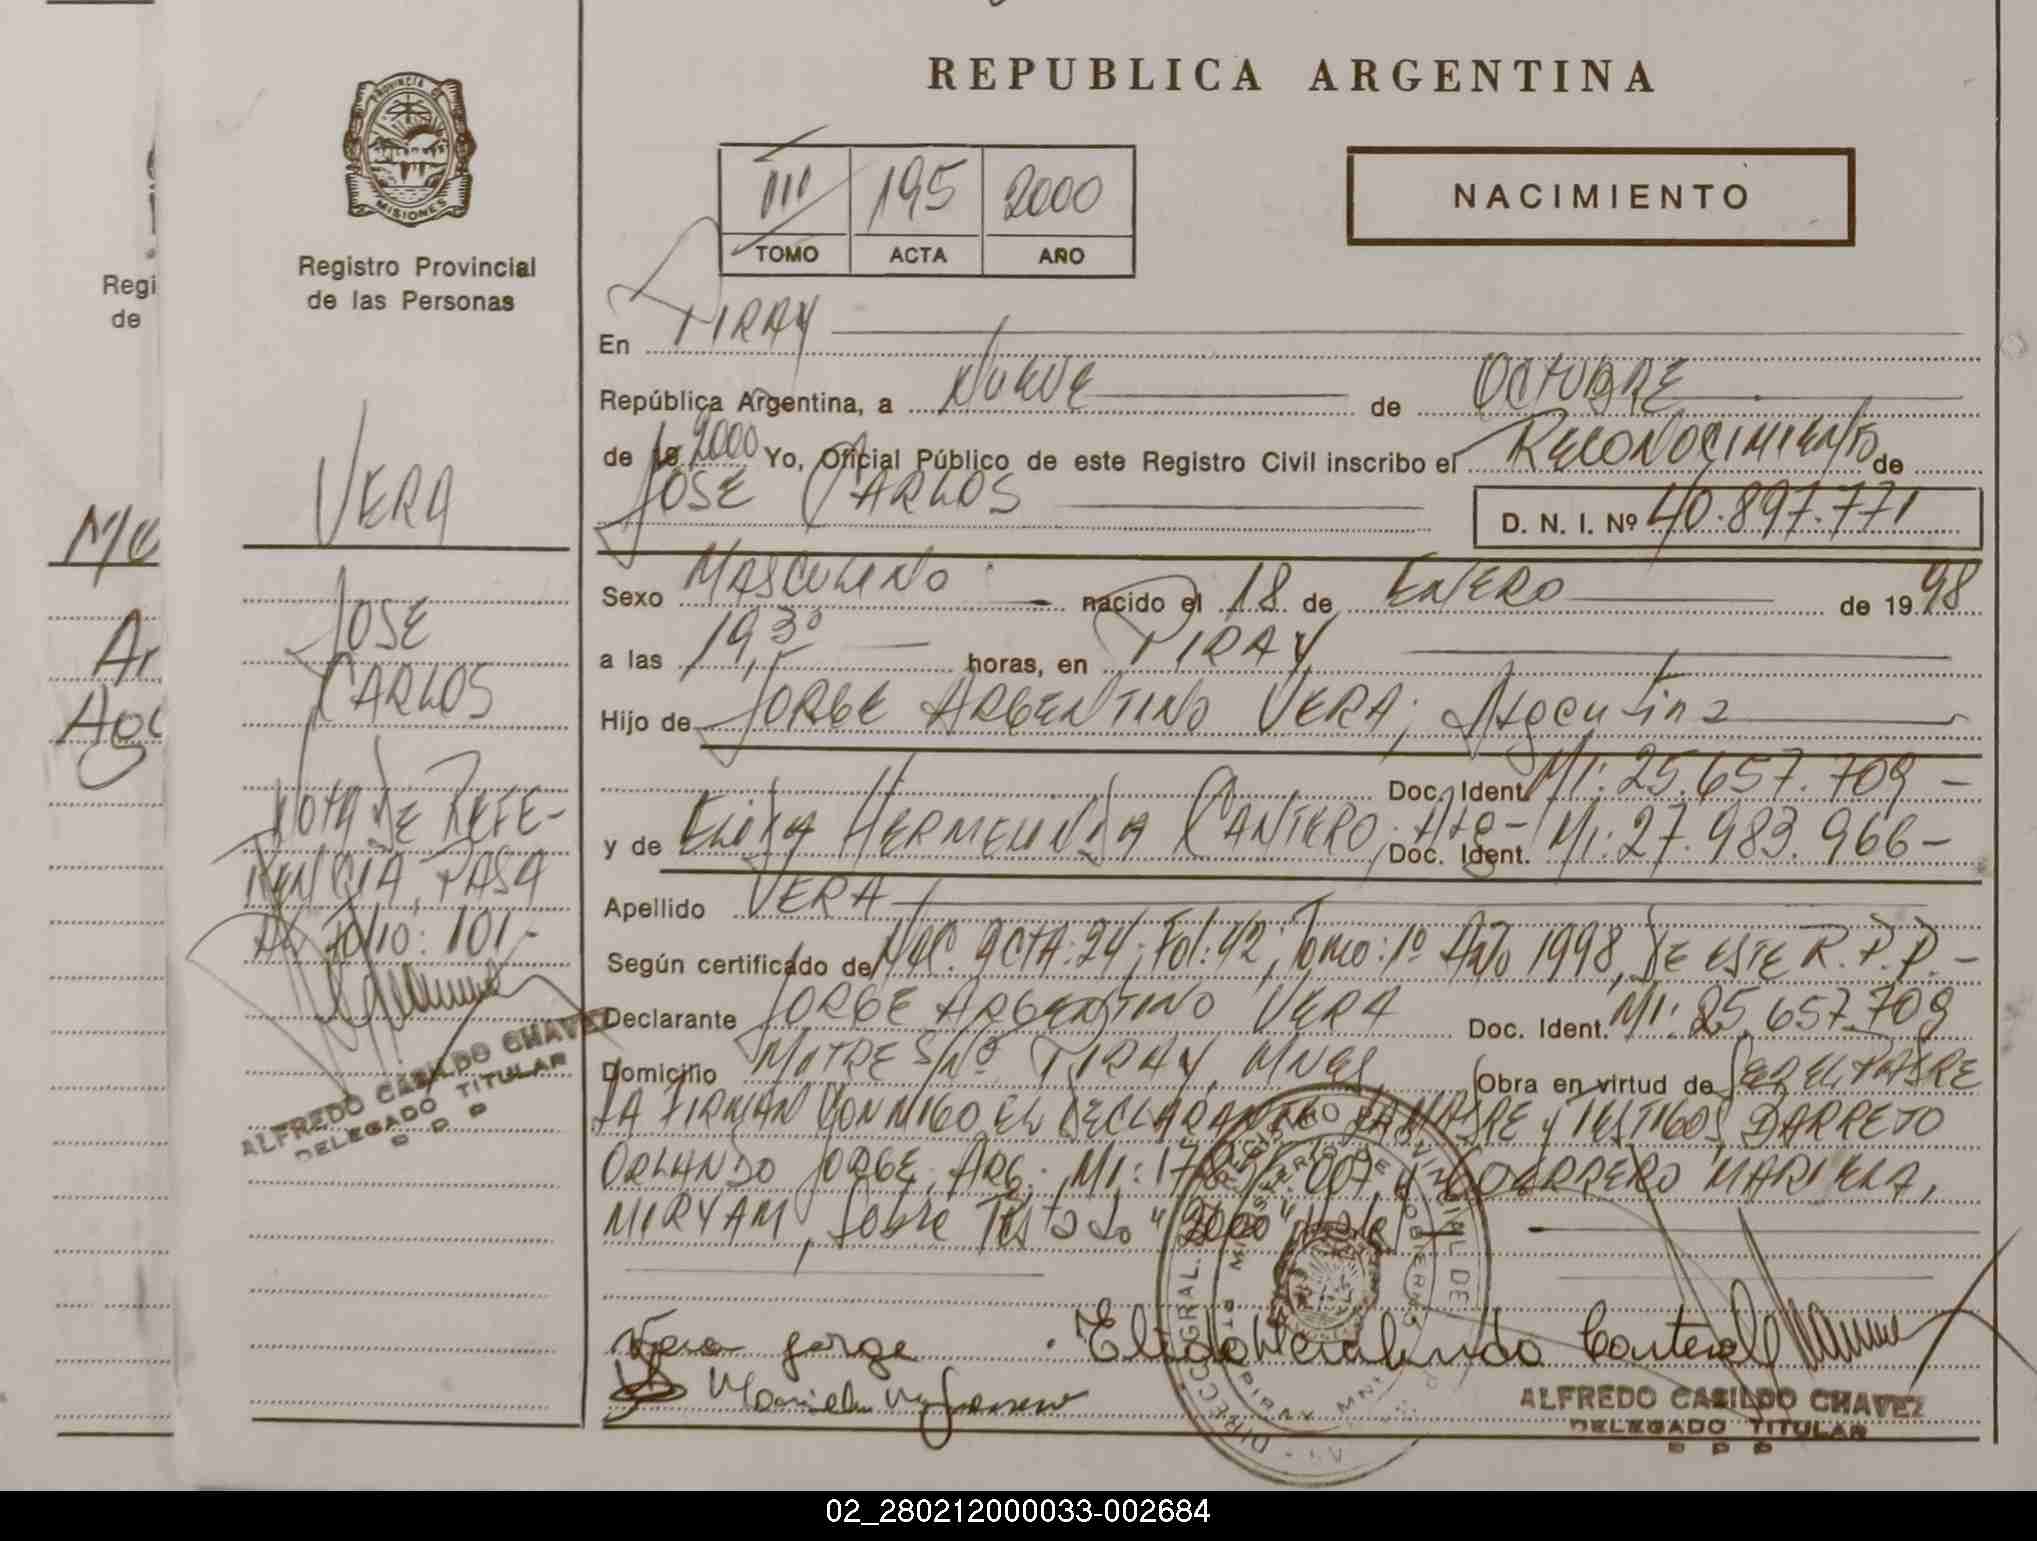 REPUBLICA ARGENTINA
PROVINCIA DE
MISIONES
Registro Provincial
de las Personas
III 195 2000
TOMO ACTA AÑO
NACIMIENTO
Regi
de
VERA
JOSE
CARLOS
NOTA DE REFE-
RENCIA, PASA
AL FOLIO: 101-
ALFREDO CASILDO CHAVEZ
DELEGADO TITULAR
En PIRAY
República Argentina, a NUEVE de OCTUBRE
de 19 2000 Yo, Oficial Público de este Registro Civil inscribo el RECONOCIMIENTO de
JOSE CARLOS D. N. I. Nº 40.897.771
Sexo MASCULINO nacido el 18 de ENERO de 1998
a las 19,30 horas, en PIRAY
Hijo de JORGE ARGENTINO VERA; Argentina
Doc. Ident. MI: 25.657.709-
y de ELIDA HERMELINDA CANTERO; Arg- Doc. Ident. MI: 27.983.966-
Apellido VERA
Según certificado de NAC. ACTA: 24; Fol: 42; Tomo: 1º Año 1998, DE ESTE R.P.P.-
Declarante JORGE ARGENTINO VERA Doc. Ident. MI: 25.657.709
Domicilio MITRE S/Nº PIRAY, MNES, Obra en virtud de SER EL PADRE
FIRMAN CONMIGO EL DECLARANTE LA MADRE y TESTIGOS BARRETO
ORLANDO JORGE, ARG. MI: 007, y GUERRERO MARIELA,
MIRYAM, Sobre Testado "2000" Vale
Vera Jorge Elida Hermelinda Cantero
ALFREDO CASILDO CHAVEZ
DELEGADO TITULAR
02_280212000033-002684